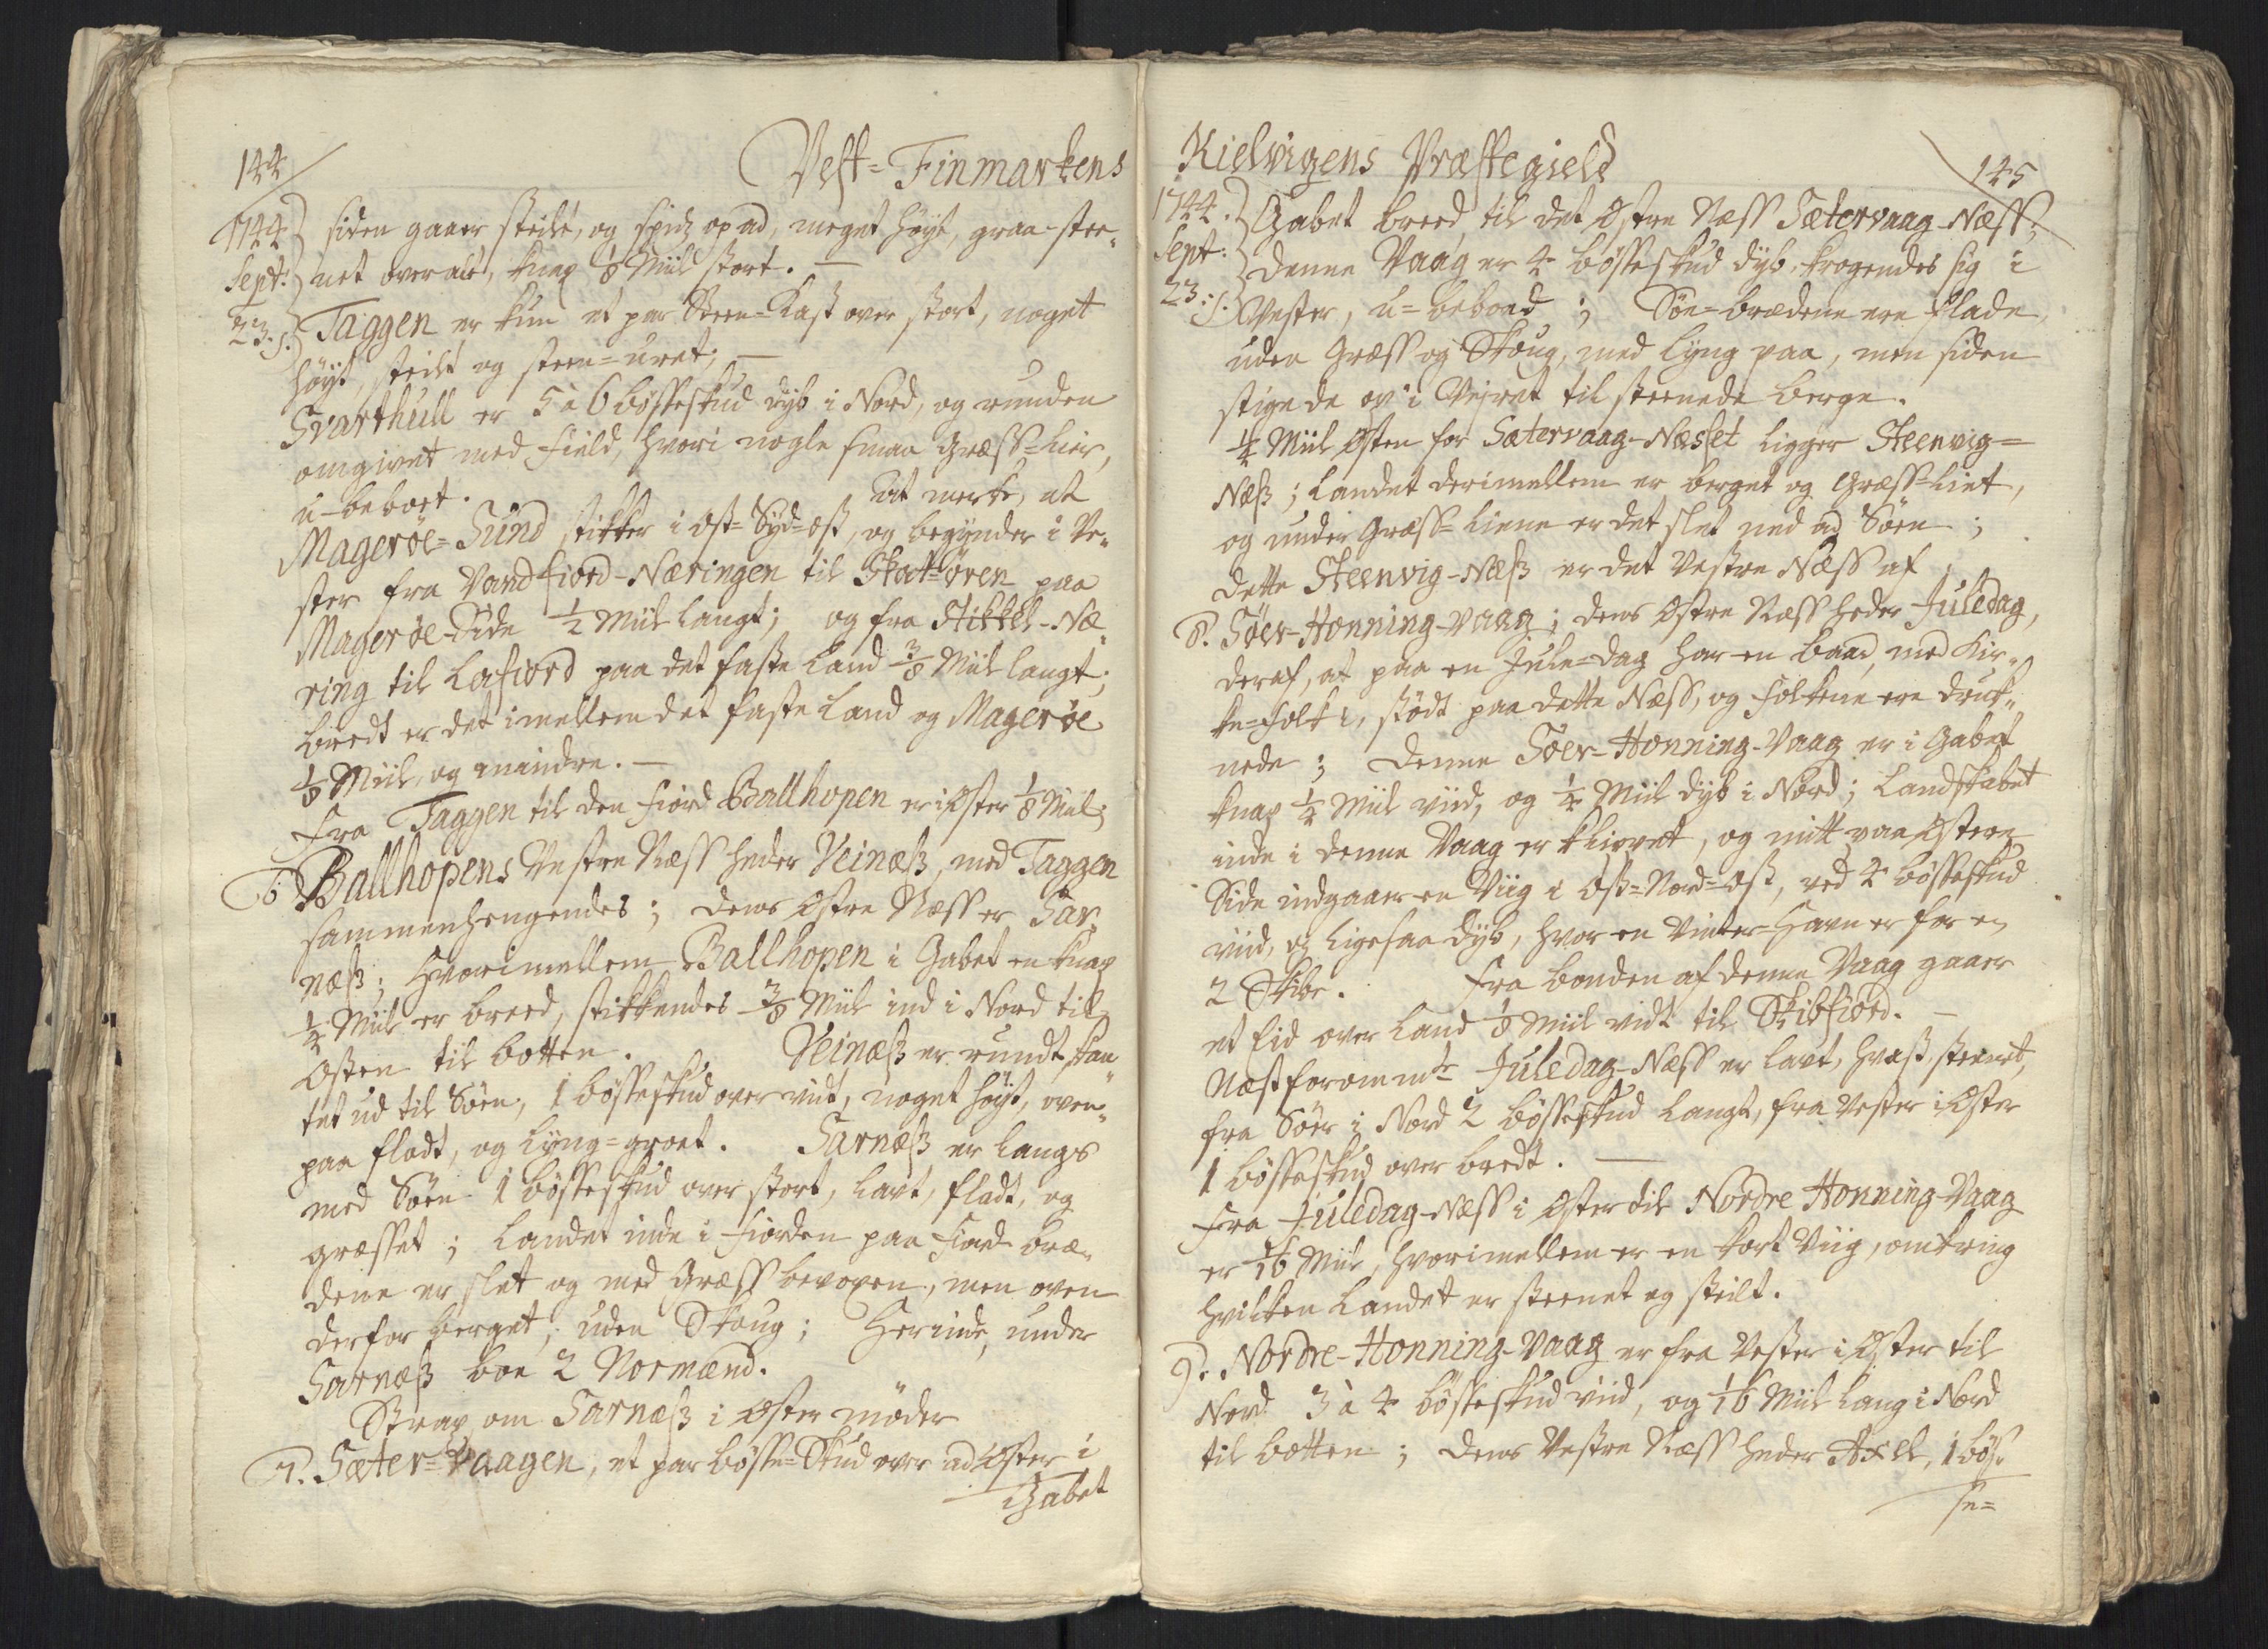 144
Vest=Finmarkens
1744 siden gaaer steilt, og spidz op ad, meget høyt, graa-stee„
Sept: net over alt, knap 1/8 Miil stort. —
23.s. Taggen er kun et par Steen=Kast over stort, noget
høyt, steilt og steen=uret; —
Svarthull er 5 à 6 bøsseskud dyb i Nord, og runden
omgivet med field, hvori nogle smaa Græss=lier,
u-beboet. At merke, at
Magerøe=Sund stikker i Ost=Syd=ost, og begynder i Ve„
ster fra Vandfiord-Næringen til Skat=øren paa
Magerøe-Side 1/2 Miil langt; og fra Stikkel-Næ„
ring til Lafiord paa det faste Land 3/8 Miil langt;
bredt er det imellem det faste Land og Magerøe
1/8 Miil, og mindre. —
Fra Taggen til den fiord Ballhopen er i Oster 1/8 Miil;
6. Ballhopens Vestre Næss heder Veinæss, med Taggen
sammenhengendes; dens Ostre Næss er Sar„
næss; Hvorimellem Ballhopen i Gabet en knap
1/4 Miil er breed, stikkendes 3/8 Miil ind i Nord til
Osten til botten. Veinæss er rundt kan„
tet ud til Søen, 1 bøsseskud over vidt, noget høyt, oven„
paa fladt, og lyng=groet. Sarnæss er langs
med Søen 1 bøsseskud over stort, lavt, fladt, og
græsset; Landet inde i fiorden paa fiord bræ„
dene er slet og med Græss bevoxen, men oven
derfor berget, uden Skoug; Herinde, under
Sarnæss boe 2 Normænd.
Strax om Sarnæss i Oster møder
7. Sæter=Vaagen, et par bøsse=Skud over ad Oster i
Gabet
Kielvigens Præstegield
145
1744. Gabet breed til det Ostre Næss Sætervaag-Næss;
Sept: denne Vaag er 4 bøsseskud dyb, krogendes sig i
23.s. Vester, u=beboed; Søe=brædene ere flade,
uden Græss og Skoug, med lyng paa, men siden
stige de op i Vejret til steenede berge.
1/4 Miil Osten for Sætervaag-Næsset ligger Steenvig=
Næss; Landet derimellem er berget og Græss=liet,
og under Græss=lierne er det slet ned ad Søen;
dette Steenvig-Næss er det Vestre Næss af
8. Søer-Honning-Vaag; dens Ostre Næss heder Juledag,
deraf, at paa en Jule=dag har en baad, med Kir„
ke=folk i, stødt paa dette Næss, og folkene ere druk„
nede; denne Søer-Honning-Vaag er i Gabet
knap 1/4 Miil viid, og 1/4 Miil dyb i Nord; Landskabet
inde i denne Vaag er klippet, og mitt paa Ostere
Side indgaaer en Viig i Ost=Nord=Ost, ved 4 bøsseskud
viid, og ligesaa dyb, hvor en Vinter-Havn er for en
2 Skibe. Fra bonden af denne Vaag gaaer
et Eid over Land 1/8 Miil vidt til Skibfiord. —
Næstforommte Juledag-Næss er lavt, hvast, steenet,
fra Søer i Nord 2 bøsseskud langt, fra Vester i Oster
1 bøsseskud over bredt. —
Fra Juledag-Næss i Oster til Nordre Honning-Vaag
er 1/16 Miil, hvorimellem er en kort Viig, omkring
hvilken Landet er steenet og steilt.
9. Nordre-Honning-Vaag er fra Vester i Oster til
Nord 3 à 4 bøsseskud viid, og 1/16 Miil lang i Nord
til botten; dens Vestre Næss heder Axel, 1 bøs„
se=